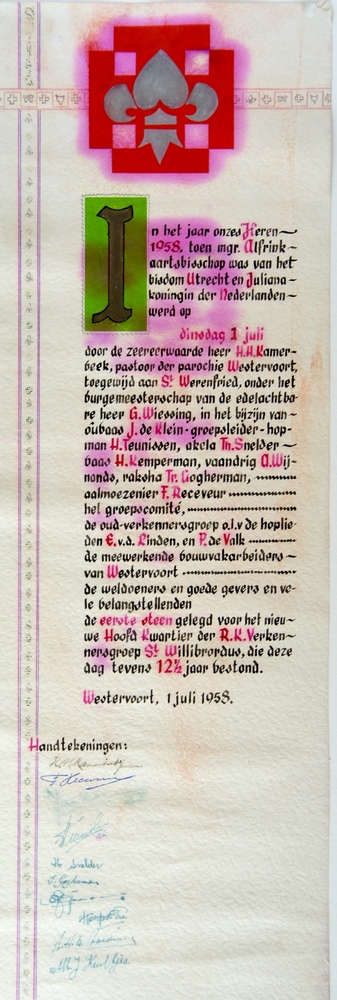 In het jaar onzes Heren~
1958, toen mgr. Alfrink~
aartsbisschop was van het
bisdom Utrecht en Juliana~
koningin der Nederlanden~
werd op
dinsdag 1 juli
door de zeereerwaarde heer H.H.Kamer-
beek, pastoor der parochie Westervoort,
toegewijd aan St Werenfried, onder het
burgemeesterschap van de edelachtba-
re heer G.Wiessing, in het bijzijn van~
oubaas J.de Klein-groepsleider-hop-
man H.Teunissen, akela Th.Snelder~
baas H.Kemperman, vaandrig A.Wij-
nands, raksha Tr. Gogherman,
aalmoezenier F.Receveur
het groepscomité,
de oud-verkennersgroep o.l.v de hoplie-
den E.v.d. Linden, en P.de Valk
de meewerkende bouwvakarbeiders~
van Westervoort
de weldoeners en goede gevers en ve-
le belangstellenden
de eerste steen gelegd voor het nieu-
we Hoofd Kwartier der R.K.Verken-
nersgroep St Willibrordus, die deze
dag tevens 12½ jaar bestond.
Westervoort, 1 juli 1958.
Handtekeningen:
Snelder